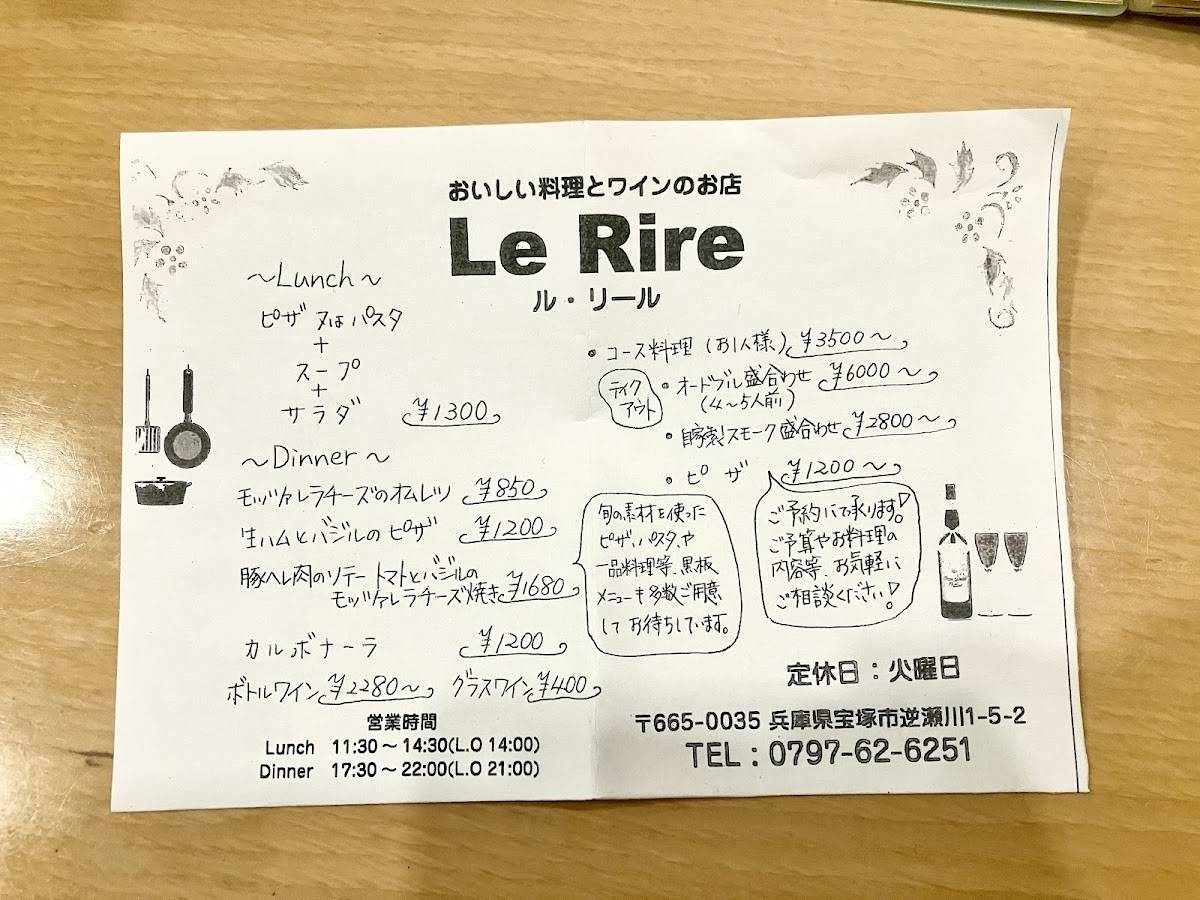 おいしい料理とワインのお店
Le Rire
ル・リール
～Lunch～
ピザ又はパスタ
+
スープ
+
サラダ ¥1300
～Dinner～
モッツァレラチーズのオムレツ ¥850
生ハムとバジルのピザ ¥1200
豚ヘレ肉のソテー トマトとバジルの
モッツァレラチーズ焼き ¥1680
カルボナーラ ¥1200
ボトルワイン ¥2280～ グラスワイン ¥400
営業時間
Lunch 11:30～14:30(L.O 14:00)
Dinner 17:30～22:00(L.O 21:00)
・コース料理(お1人様) ¥3500～
テイク
アウト
・オードブル盛合わせ ¥6000～
(4～5人前)
・自家製スモーク盛合わせ ¥2800～
・ピザ ¥1200～
旬の素材を使った
ピザ、パスタ、や
一品料理等、黒板
メニューも多数ご用意
してお待ちしています。
ご予約にて承ります!
ご予算やお料理の
内容等、お気軽に
ご相談ください!
定休日:火曜日
〒665-0035 兵庫県宝塚市逆瀬川1-5-2
TEL:0797-62-6251